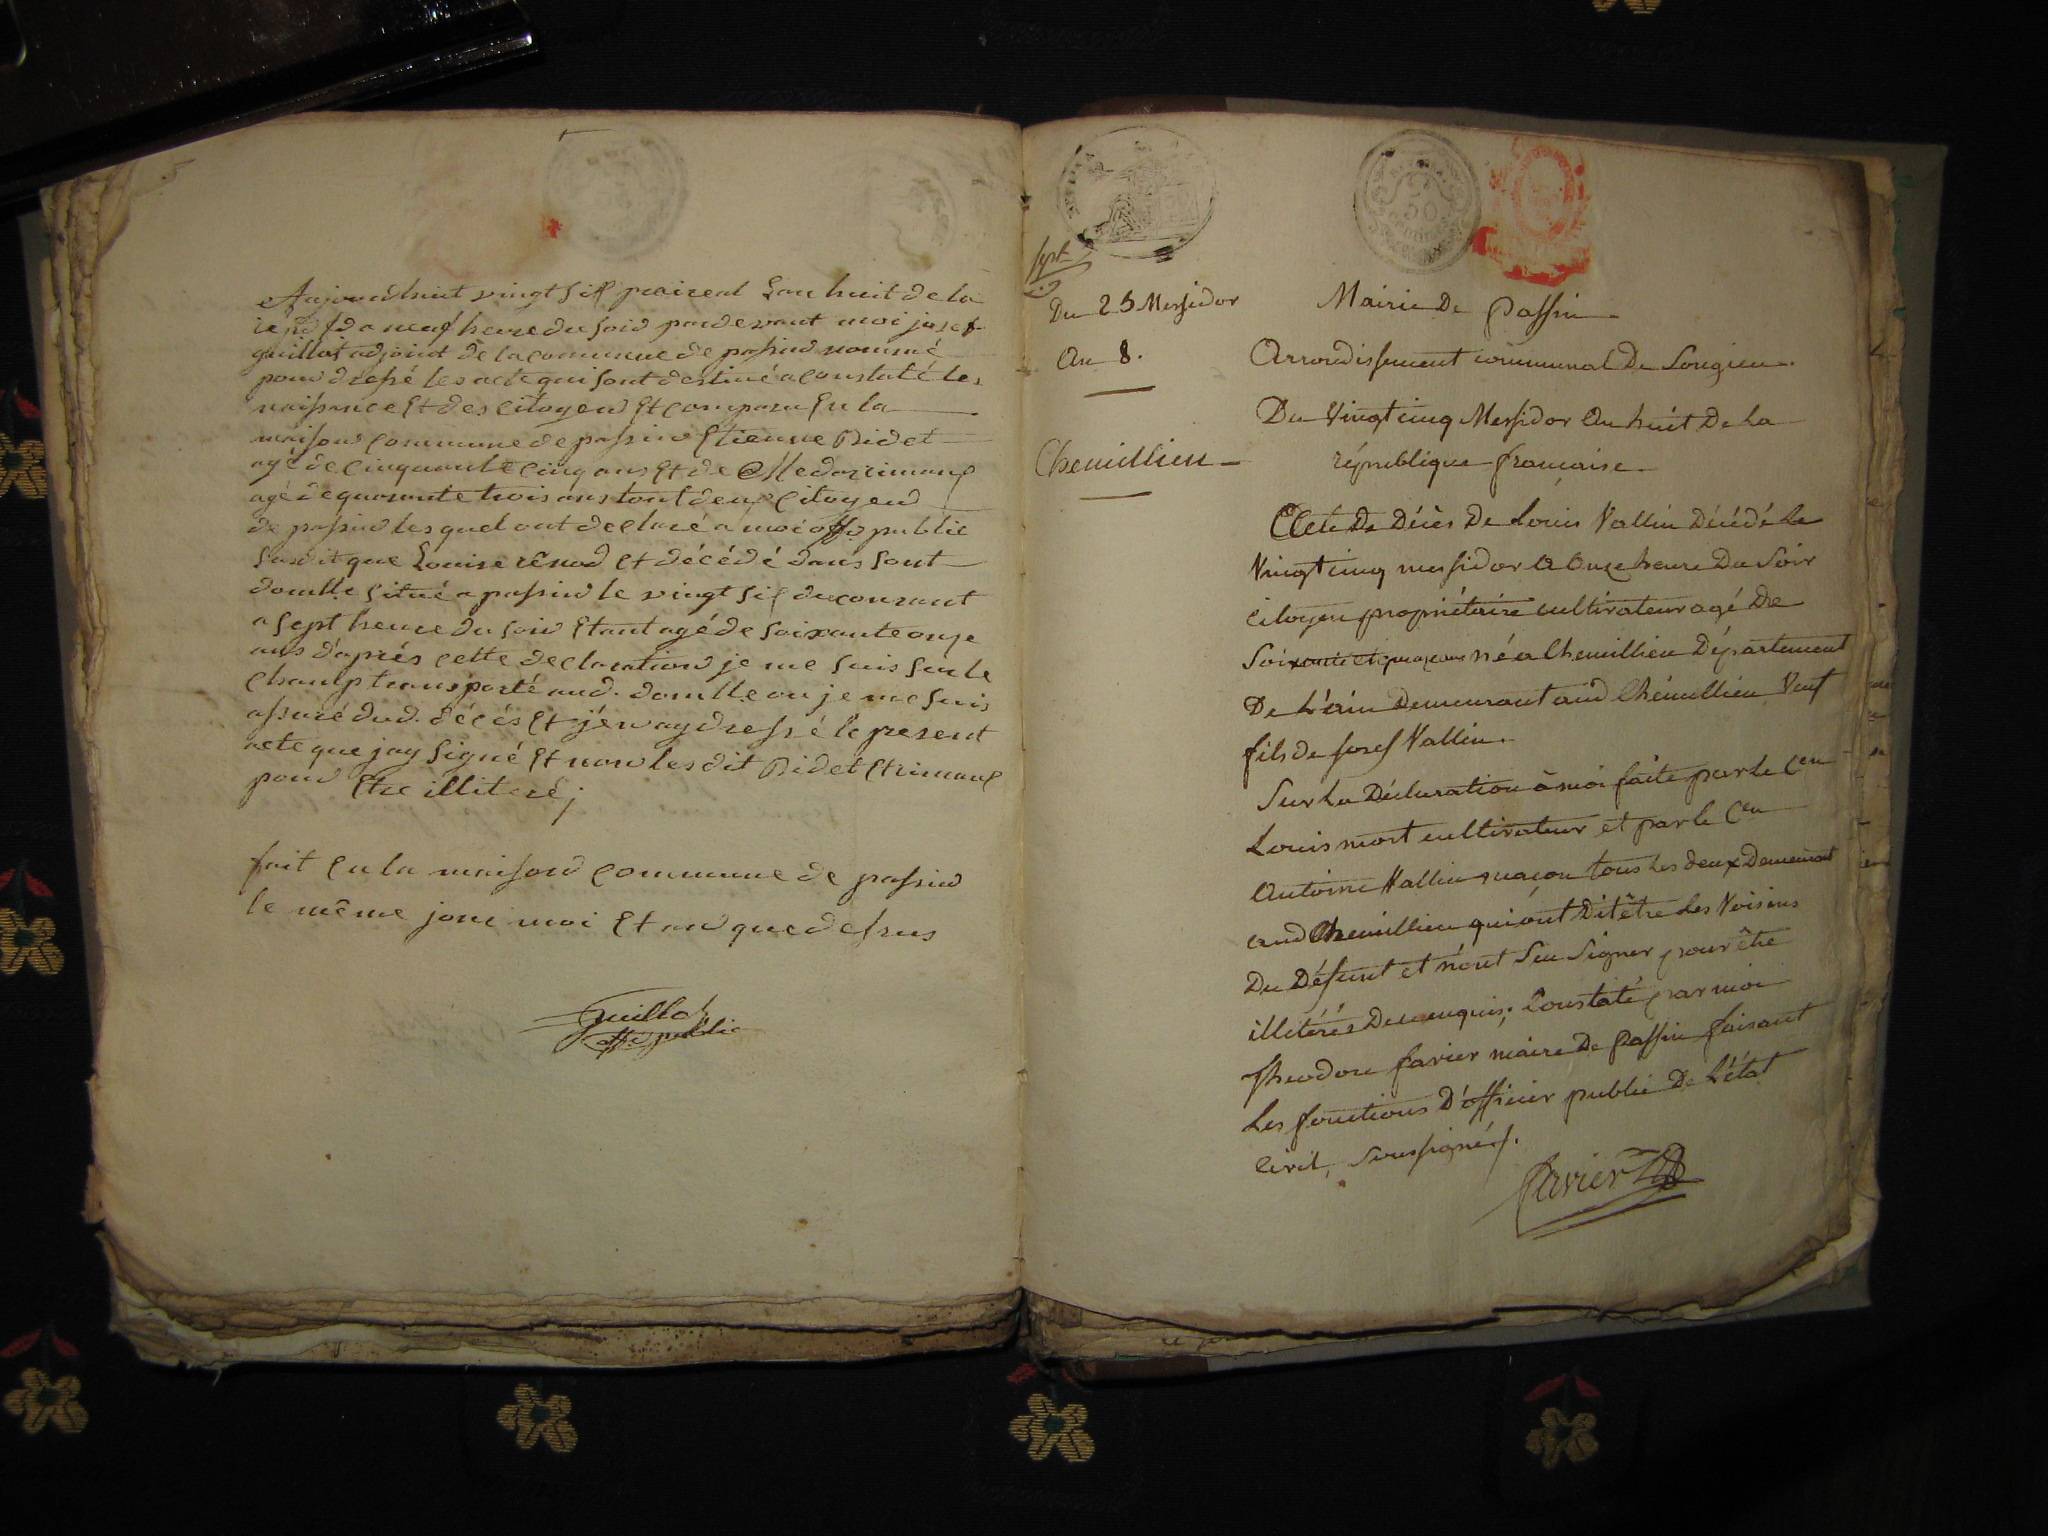 Aujourdhuit vingt six praireal Lan huit de la
a neuf heure du soir pardevant moi josef
guillot adjoint de la commune de passin nommé
pour dressé les acte qui sont destiné a constaté les
naissance Et des citoyen Et comparu En la
maison commune de passin Etienne Bidet
agé de cinquante cinq ans Et de
agé de quarante trois ans tout deux citoyen
de passin les quel ont déclaré a moi offr public
susdit que Louise et décédé dans sont
domlle situé a passin le vingt six du courant
a sept heure du soir Etant agé de soixante onze
ans d'aprés cette declaration je me suis sur le
champ transporté aud. domlle ou je me suis
assuré dud. décés Et j'en ay dressé le present
acte que jay signé Et non les dit Bidet Et
pour Etre illiteré;
fait En la maison commune de passin
le même jour moi Et an que dessus
Guillot
offr public
50
Du 25 Messidor
An 8.
Chemillieu
Mairie De Passin
Arrondissement communal De
Du Vingt cinq Messidor An huit De La
république française
Acte De Décès De Louis Vallin Décédé Le
Vingt cinq messidor a Onze heure Du Soir
citoyen propriétaire cultivateur agé De
né a Chemillieu Département
De L'ain Demeurant aud Chemillieu Veuf
fils de Josef Vallin.
Sur La Déclaration à moi faite par le Cen
Louis mort cultivateur et par le Cen
Antoine Vallin maçon tous Les deux Demeurant
aud Chemillieu qui ont Dit être Les Voisins
Du Défunt et n'ont Seu Signer pour être
illitérés De ce enquis; Constaté par moi
Theodore favier maire De Passin faisant
Les fonctions D'officier public De L'état
Civil, Soussigné.
Favier